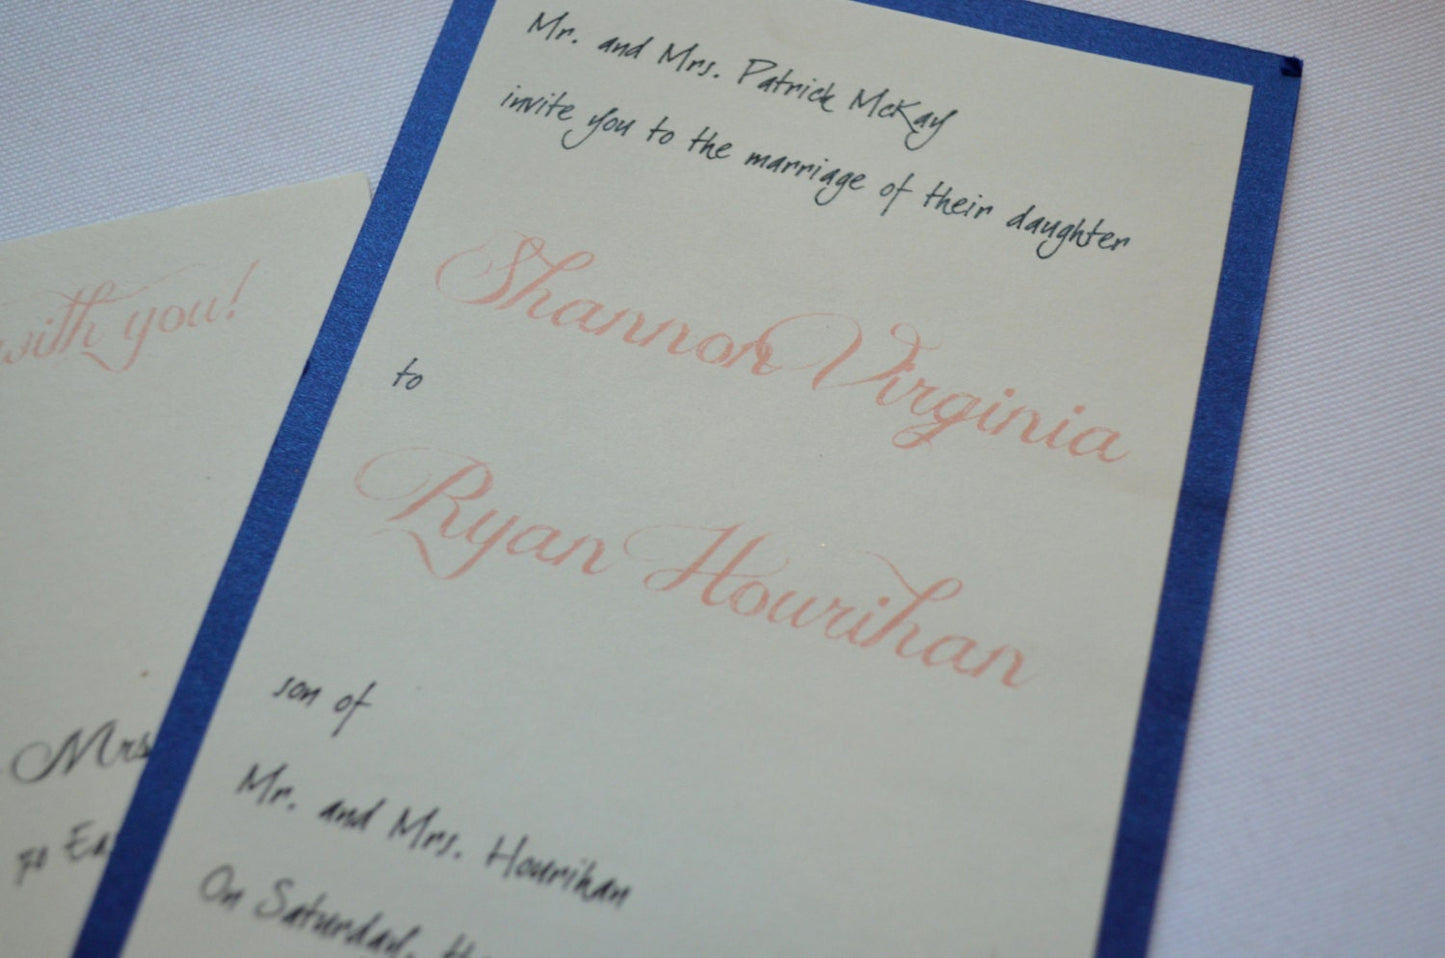 Mr. and Mrs. Patrick McKay
invite you to the marriage of their daughter
Shannon Virginia
to
Ryan Hourihan
son of
Mr. and Mrs. Hourihan
On Saturday,
with you!
Mrs